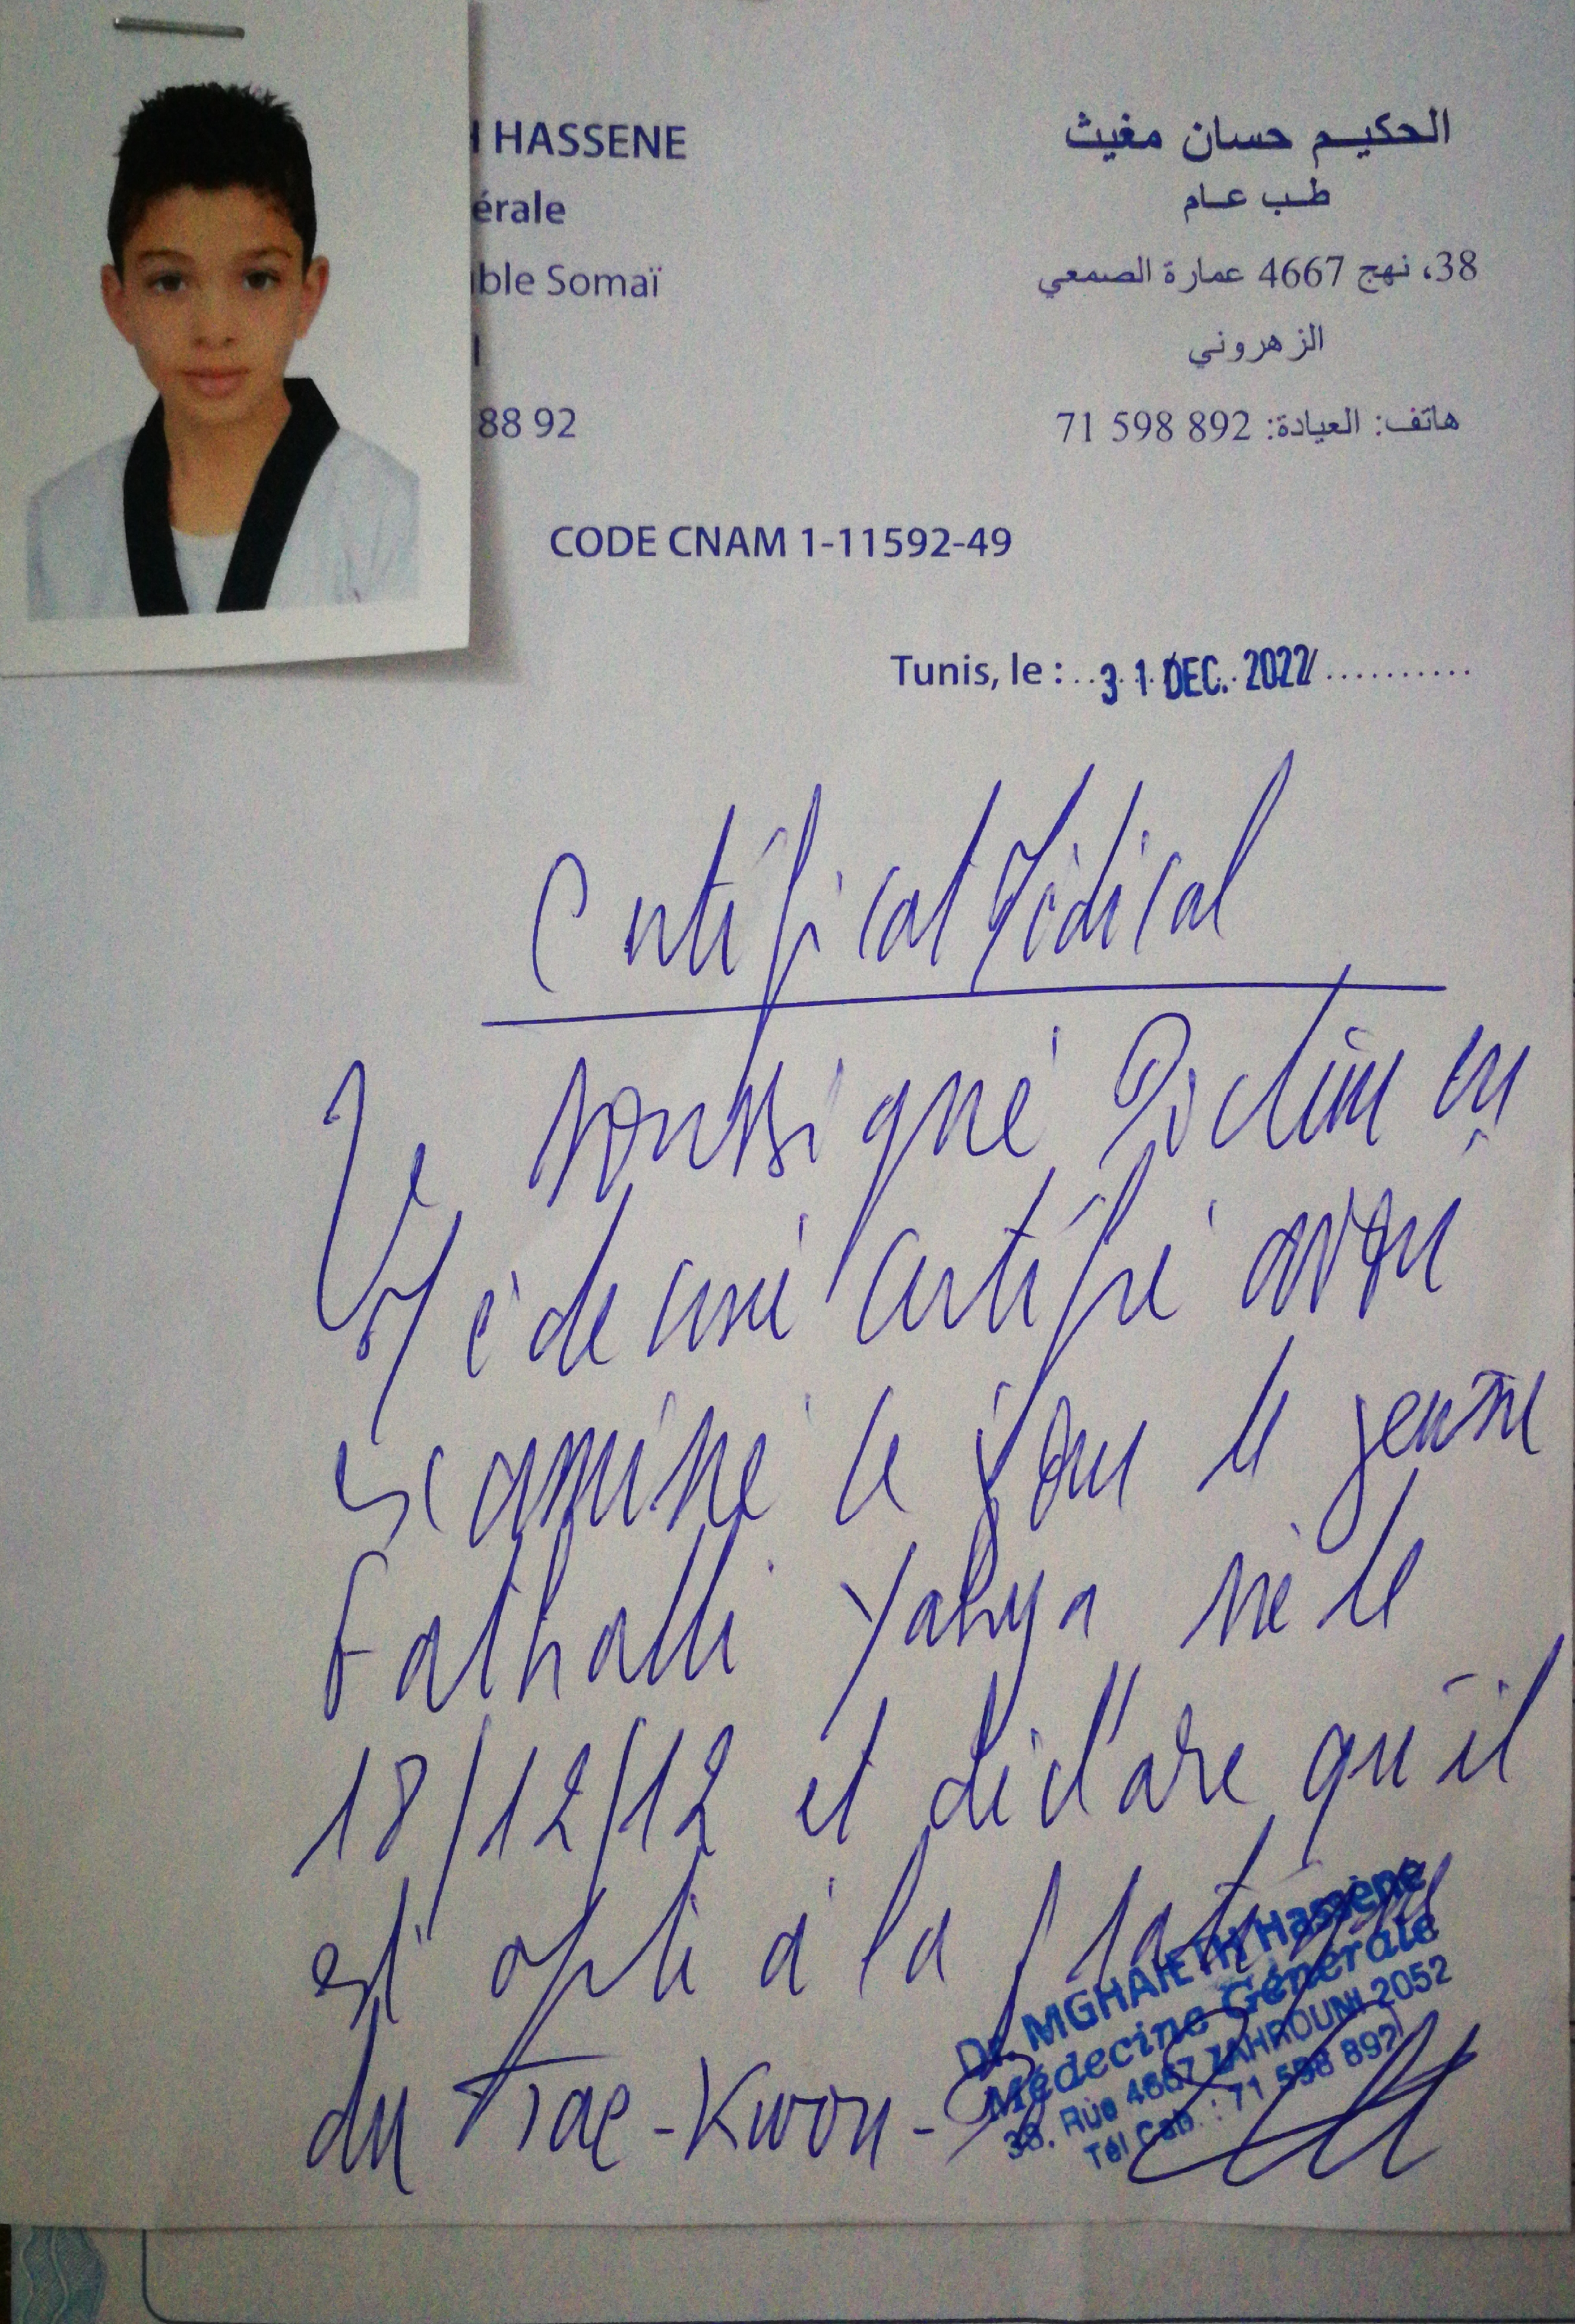 HASSENE
érale
ble Somaï
88 92
الحكيم حسان مغيث
طب عام
38، نهج 4667 عمارة الصمعي
الزهروني
هاتف: العيادة: 892 598 71
CODE CNAM 1-11592-49
Tunis, le : 31 DEC. 2022
Certificat Médical
Je soussigné Docteur en
Médecine certifie avoir
examiné ce jour le jeune
Fathalli Yahya né le
18/12/12 et déclare qu'il
est apte à la pratique
du Tae-Kwon-
Dr. MGHAIETH Hassène
Médecine Générale
38, Rue 4667 ZAHROUNI 2052
Tél Cab. : 71 598 892